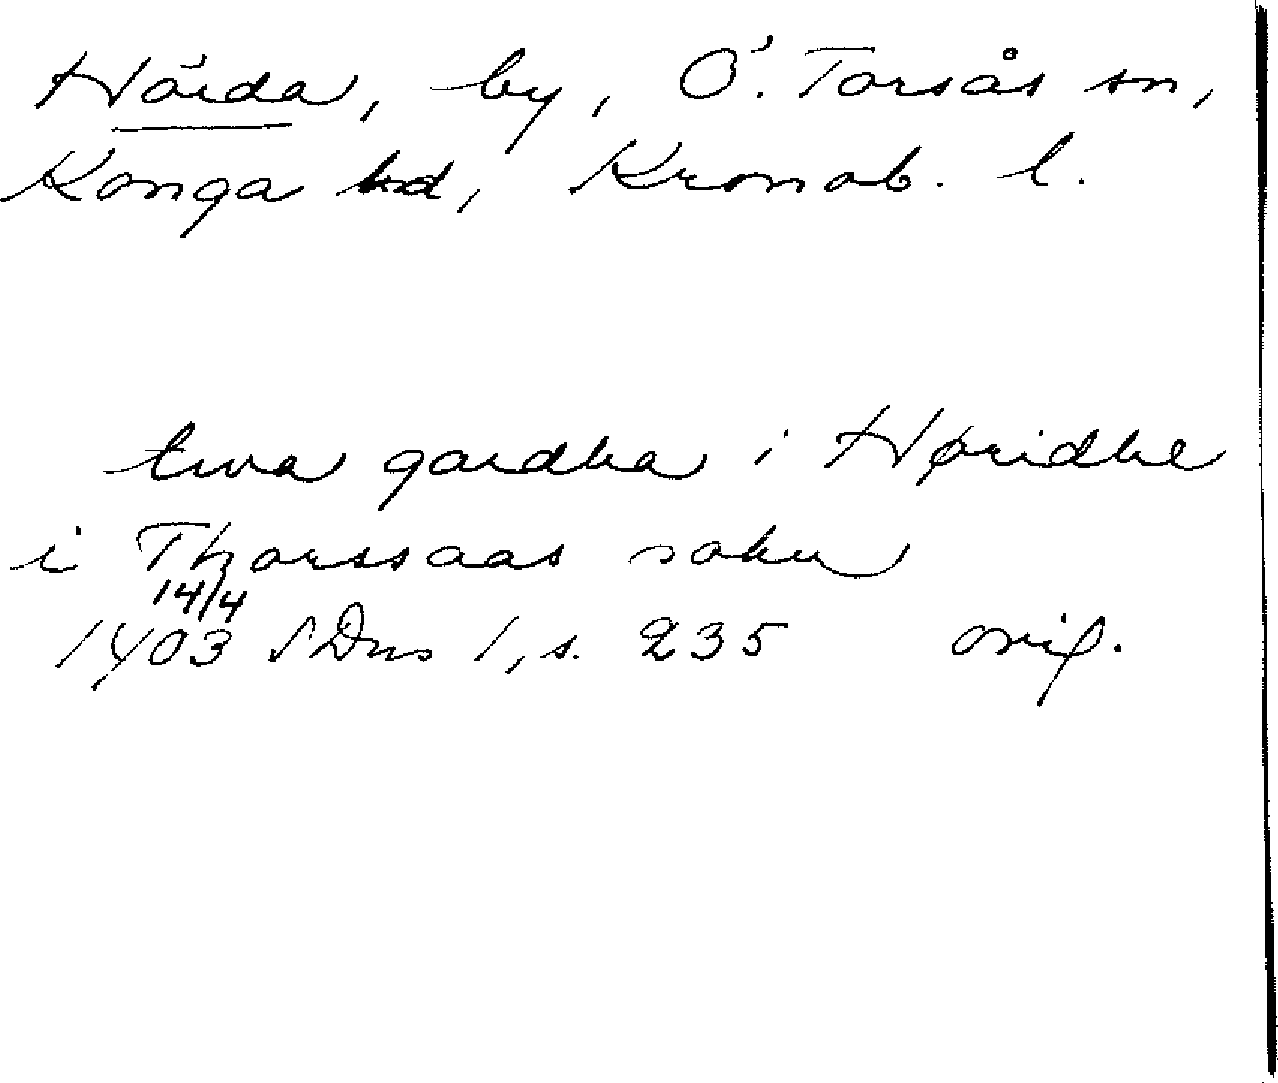 Hörda, by, Ö. Torsås sn,
Konga hd, Kronob. l.
twa gardha i Høridhe
i Thorssaas sokn
14/4
1403 SDns 1, s. 235 orig.